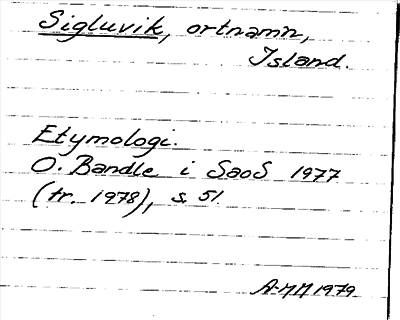 Sigluvik, ortnamn,
Island.
Etymologi.
O. Bandle i SaoS 1977
(tr. 1978), s. 51.
A-MM 1979